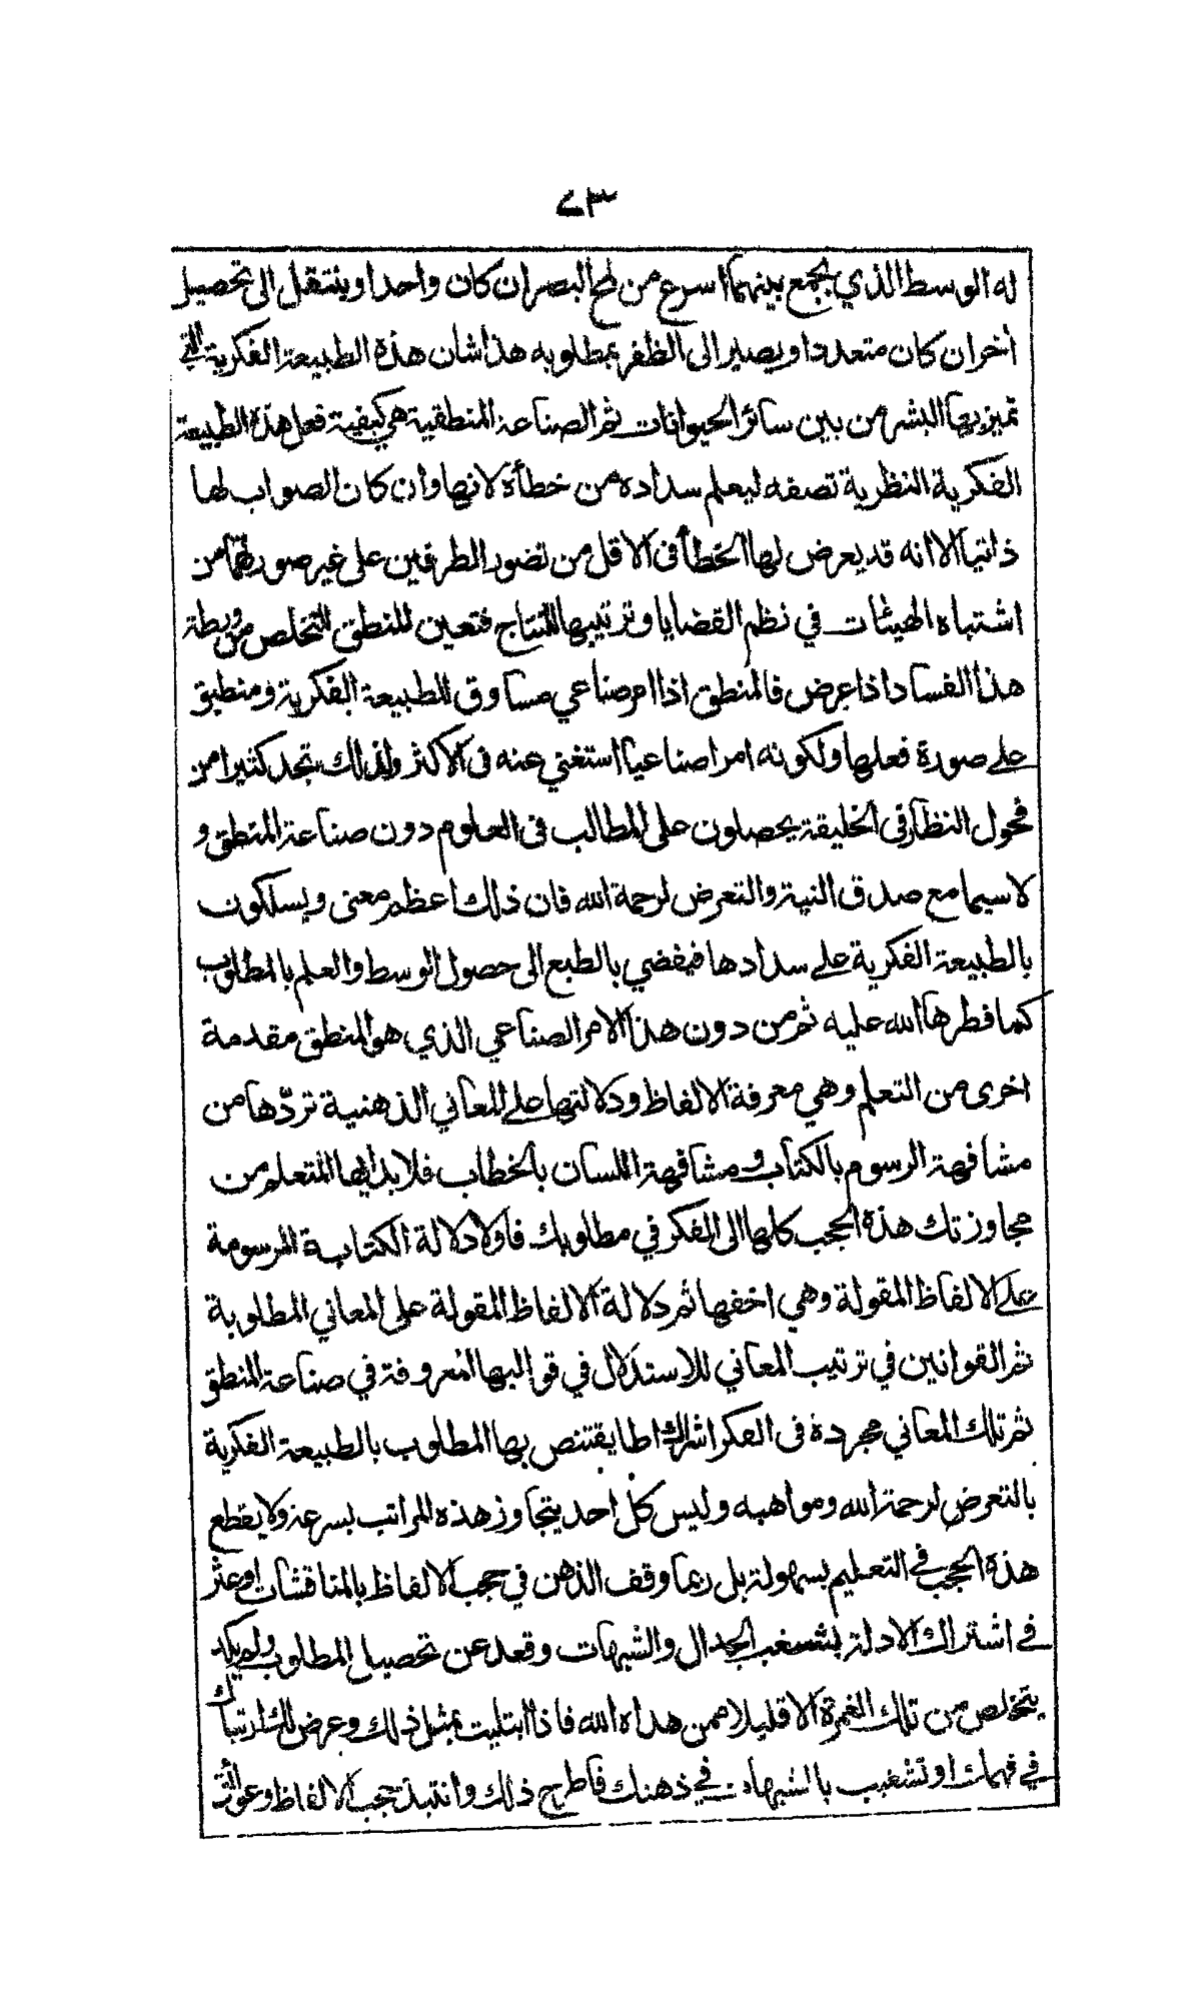 ٧٣
له الوسط الذي يجمع بينهما اسرع من لمح البصر ان كان واحدا وينتقل الى تحصيل
اخر ان كان متعددا ويصير الى الظفر بمطلوبه هذا شان هذه الطبيعة الفكرية التي
تميز بها البشر من بين سائر الحيوانات ثم الصناعة المنطقية هي كيفية فعل هذه الطبيعة
الفكرية النظرية تصفه ليعلم سداده من خطأه لانها وان كان الصواب لها
ذاتيا الا انه قد يعرض لها الخطأ فى الاقل من تصور الطرفين على غير صورتهما من
اشتباه الهيئات في نظم القضايا وترتيبها للنتاج فتعين المنطق للتخلص من ورطة
هذا الفساد اذا عرض فالمنطق اذا امر صناعي مساوق للطبيعة الفكرية ومنطبق
على صورة فعلها ولكونه امرا صناعيا استغني عنه فى الاكثر ولذلك تجد كثيرا من
فحول النظار فى الخليقة يحصلون على المطالب فى العلوم دون صناعة المنطق و
لا سيما مع صدق النية والتعرض لرحمة الله فان ذلك اعظم معنى ويسلكون
بالطبيعة الفكرية على سدادها فيفضي بالطبع الى حصول الوسط والعلم بالمطلوب
كما فطرها الله عليه ثم من دون هذا الامر الصناعي الذي هو المنطق مقدمة
اخرى من التعلم وهي معرفة الالفاظ ودلالتها على المعاني الذهنية تردّها من
مشافهة الرسوم بالكتاب و مشافهة اللسان بالخطاب فلا بد ايها المتعلم من
مجاوزتك هذه الحجب كلها الى الفكر في مطلوبك فاولا دلالة الكتابة المرسومة
على الالفاظ المقولة وهي اخفها ثم دلالة الالفاظ المقولة على المعاني المطلوبة
ثم القوانين في ترتيب المعاني للاستدلال في قوالبها المعروفة في صناعة المنطق
ثم تلك المعاني مجردة فى الفكر اشراك اطا يقتنص بها المطلوب بالطبيعة الفكرية
بالتعرض لرحمة الله ومواهبه وليس كل احد يتجاوز هذه المراتب بسرعة ولا يقطع
هذه الحجب في التعليم بسهولة بل ربما وقف الذهن في حجب الالفاظ بالمناقشات او عثر
في اشتراك الادلة بشغب الجدال والشبهات وقعد عن تحصيل المطلوب ولم يكد
يتخلص من تلك الغمرة الا قليلا ممن هداه الله فاذا ابتليت بمثل ذلك وعرض لك ارتباك
في فهمك او تشغيب بالشبهات في ذهنك فاطرح ذلك وانتبذ حجب الالفاظ وعوائق